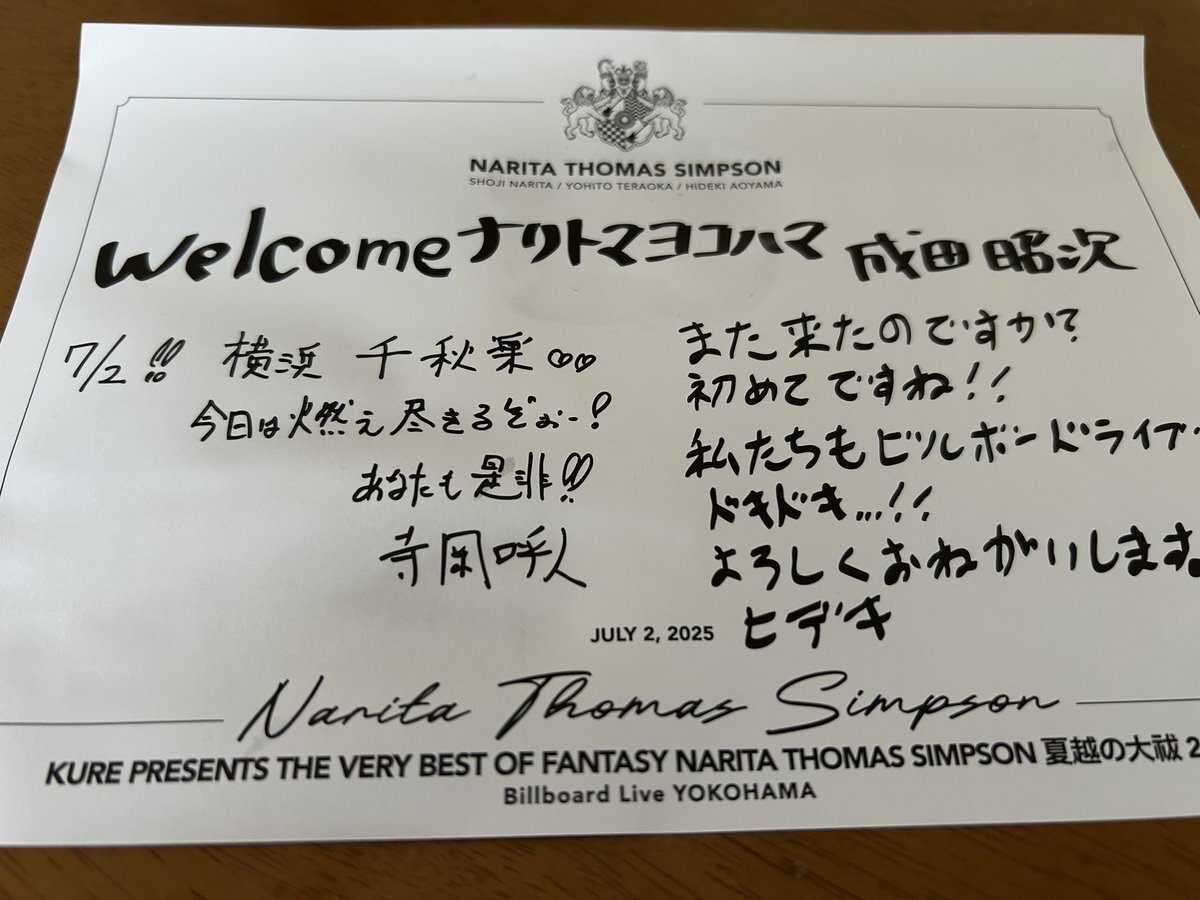 NARITA THOMAS SIMPSON
SHOJI NARITA / YOHITO TERAOKA / HIDEKI AOYAMA
Welcomeナリトマヨコハマ 成田昭次
7/2!! 横浜 千秋楽
今日は燃え尽きるぞぉー!
あなたも是非!!
寺岡呼人
また来たのですか?
初めてですね!!
私たちもビルボードライブ
ドキドキ...!!
よろしくおねがいします。
ヒデキ
JULY 2, 2025
Narita Thomas Simpson
KURE PRESENTS THE VERY BEST OF FANTASY NARITA THOMAS SIMPSON 夏越の大祓 2
Billboard Live YOKOHAMA